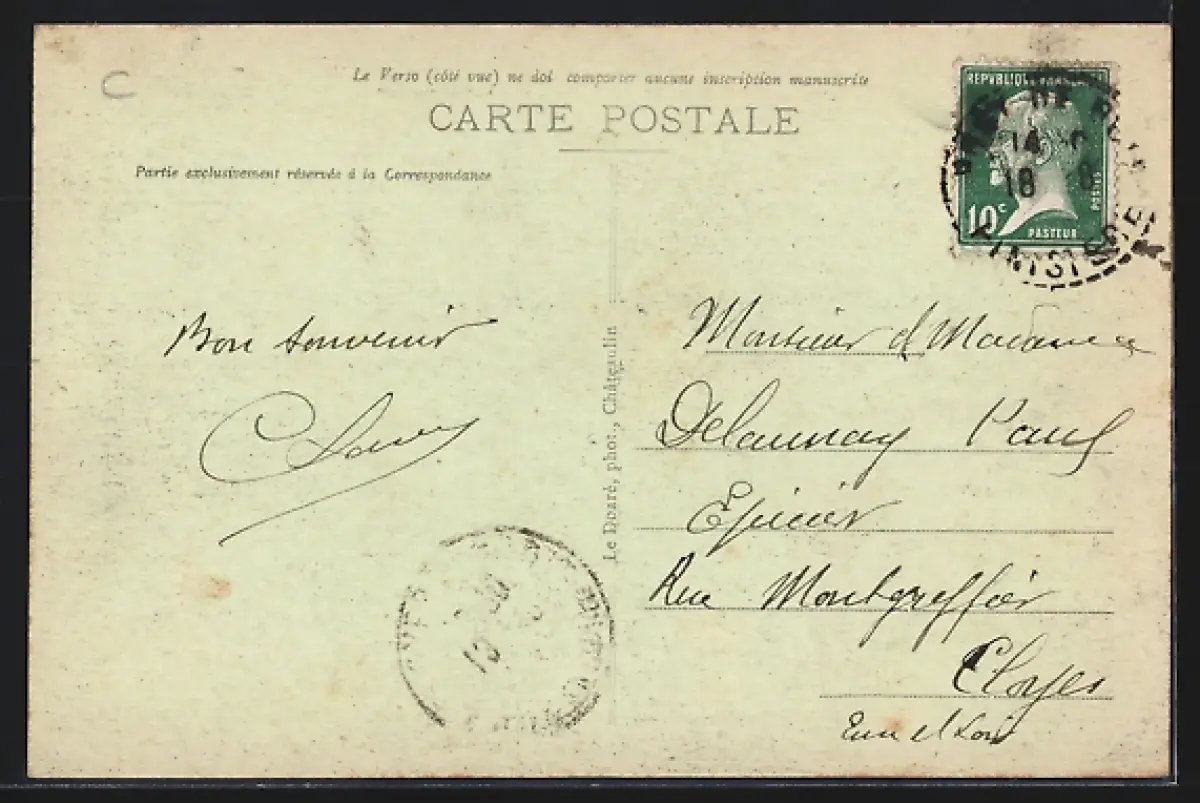 C
Le Verso (côté vue) ne doi comporter aucune inscription manuscrite
CARTE POSTALE
Partie exclusivement réservée à la Correspondance
REPUBLIQUE FRANÇAISE
10c
POSTES
PASTEUR
14
18
FINISTERE
Bon souvenir
C
Le Doaré, phot., Châteaulin
Monsieur et Madame
Delaunay Paul
Epicier
Rue Montgreffier
Cloyes
Eure et Loir